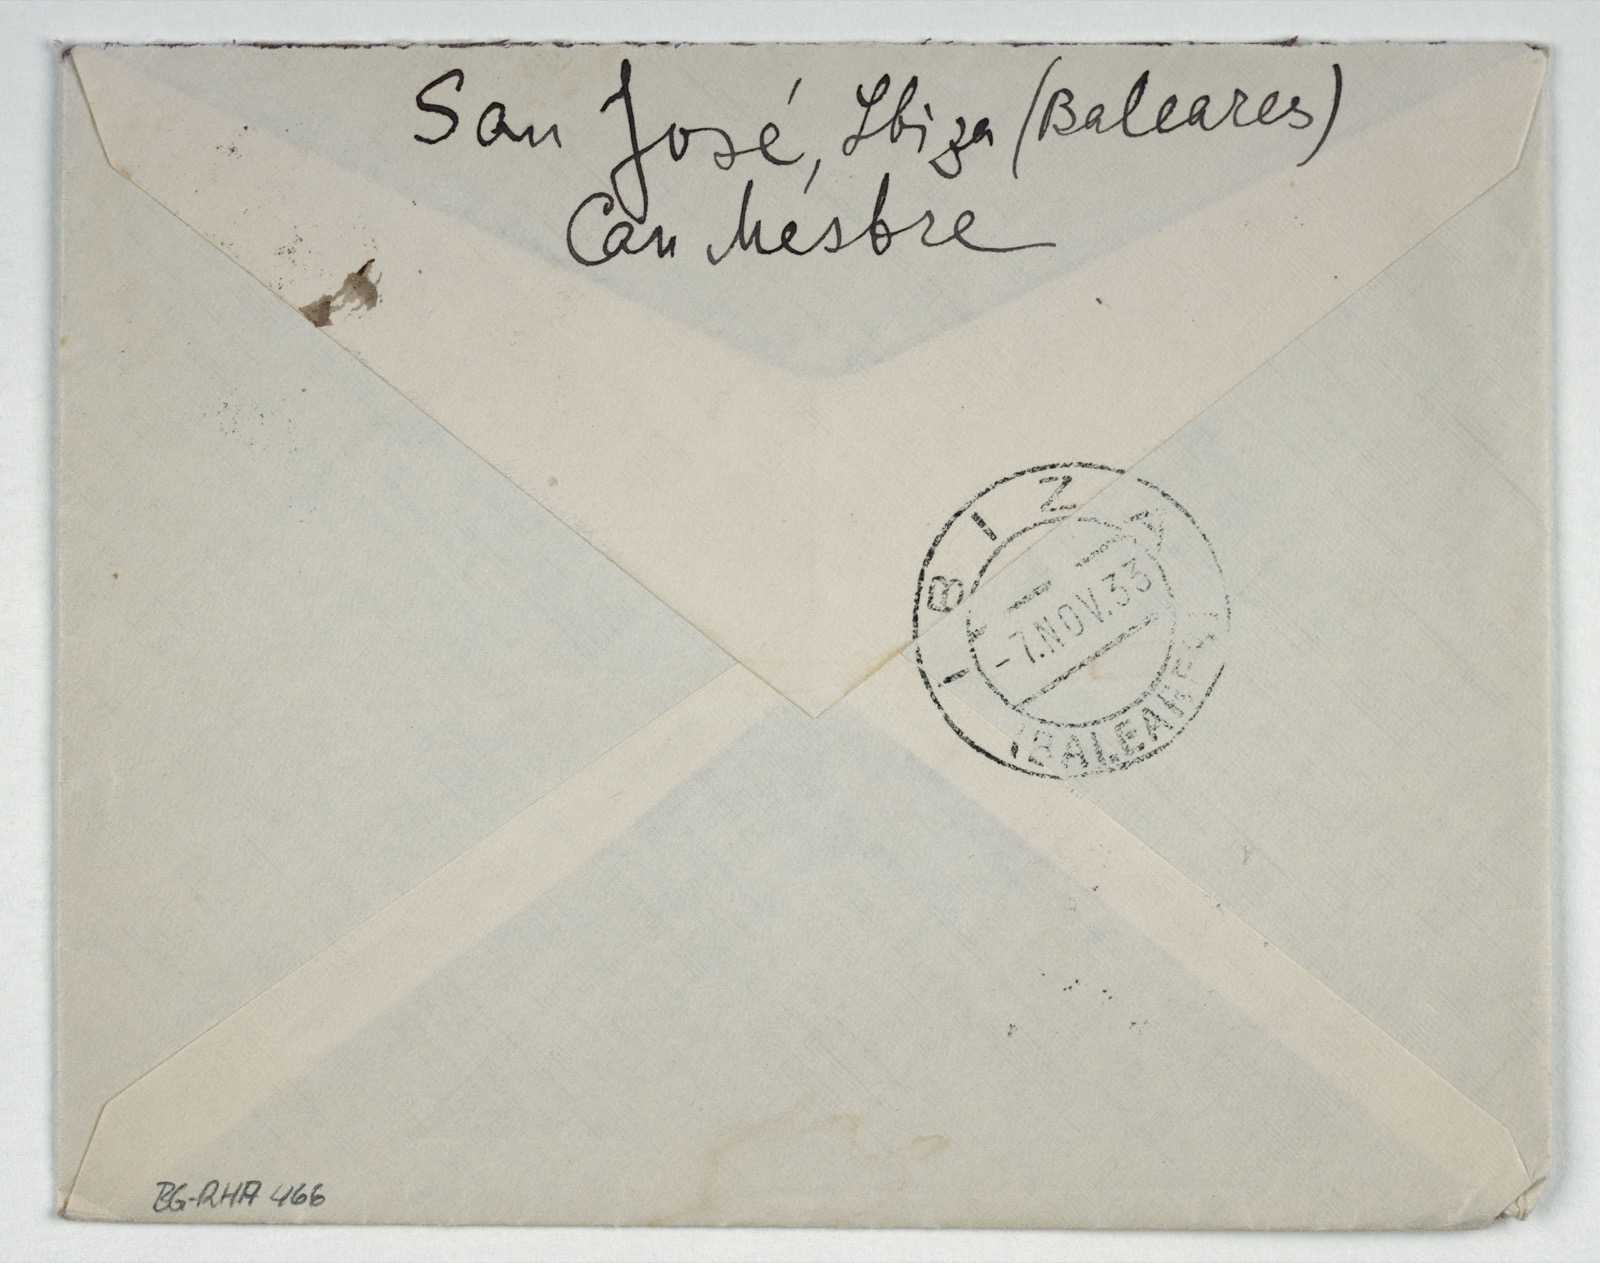 San José, Ibiza (Baleares)
Can Mésbre
IBIZA
-7.NOV.33
(BALEARES)
BG-RHA 466